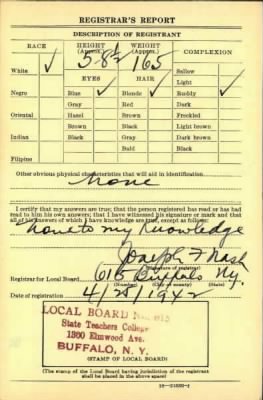 REGISTRAR'S REPORT
DESCRIPTION OF REGISTRANT
RACE HEIGHT (Approx.) WEIGHT (Approx.) COMPLEXION
White ✓ 5-8½ 165 Sallow
EYES HAIR Light
Negro Blue ✓ Blonde ✓ Ruddy ✓
Gray Red Dark
Oriental Hazel Brown Freckled
Brown Black Light brown
Indian Black Gray Dark brown
Bald Black
Filipino
Other obvious physical characteristics that will aid in identification
None
I certify that my answers are true; that the person registered has read or has had
read to him his own answers; that I have witnessed his signature or mark and that
all of his answers of which I have knowledge are true, except as follows:
None to my Knowledge
Joseph F Nash
(Signature of registrar)
Registrar for Local Board 615 Buffalo N.Y.
(Number) (City or county) (State)
Date of registration 4/25/1942
LOCAL BOARD No. 615
State Teachers College
1300 Elmwood Ave.
BUFFALO, N. Y.
(STAMP OF LOCAL BOARD)
(The stamp of the Local Board having jurisdiction of the registrant
shall be placed in the above space)